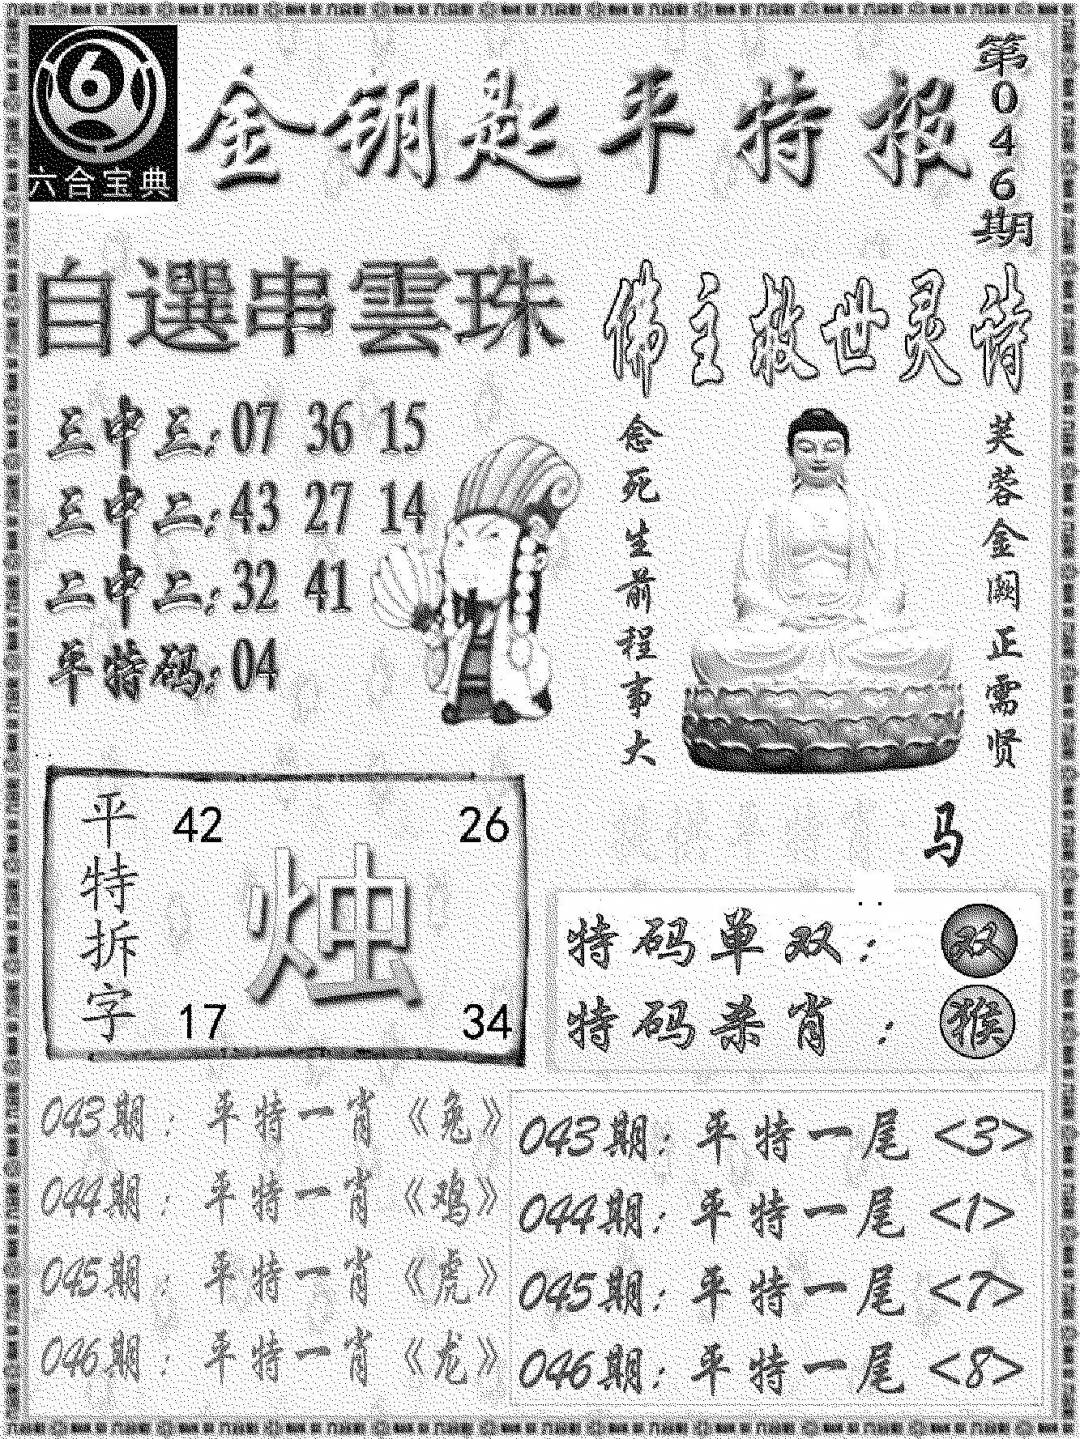 六合宝典
金钥匙平特报
第046期
自選串雲珠
三中三:07 36 15
三中二:43 27 14
二中二:32 41
平特码:04
佛主救世灵诗
芙蓉金阙正需贤
念死生前程事大
马
平特拆字
42 26
烛
17 34
特码单双:双
特码杀肖:猴
043期:平特一肖《兔》
044期:平特一肖《鸡》
045期:平特一肖《虎》
046期:平特一肖《龙》
043期:平特一尾<3>
044期:平特一尾<1>
045期:平特一尾<7>
046期:平特一尾<8>